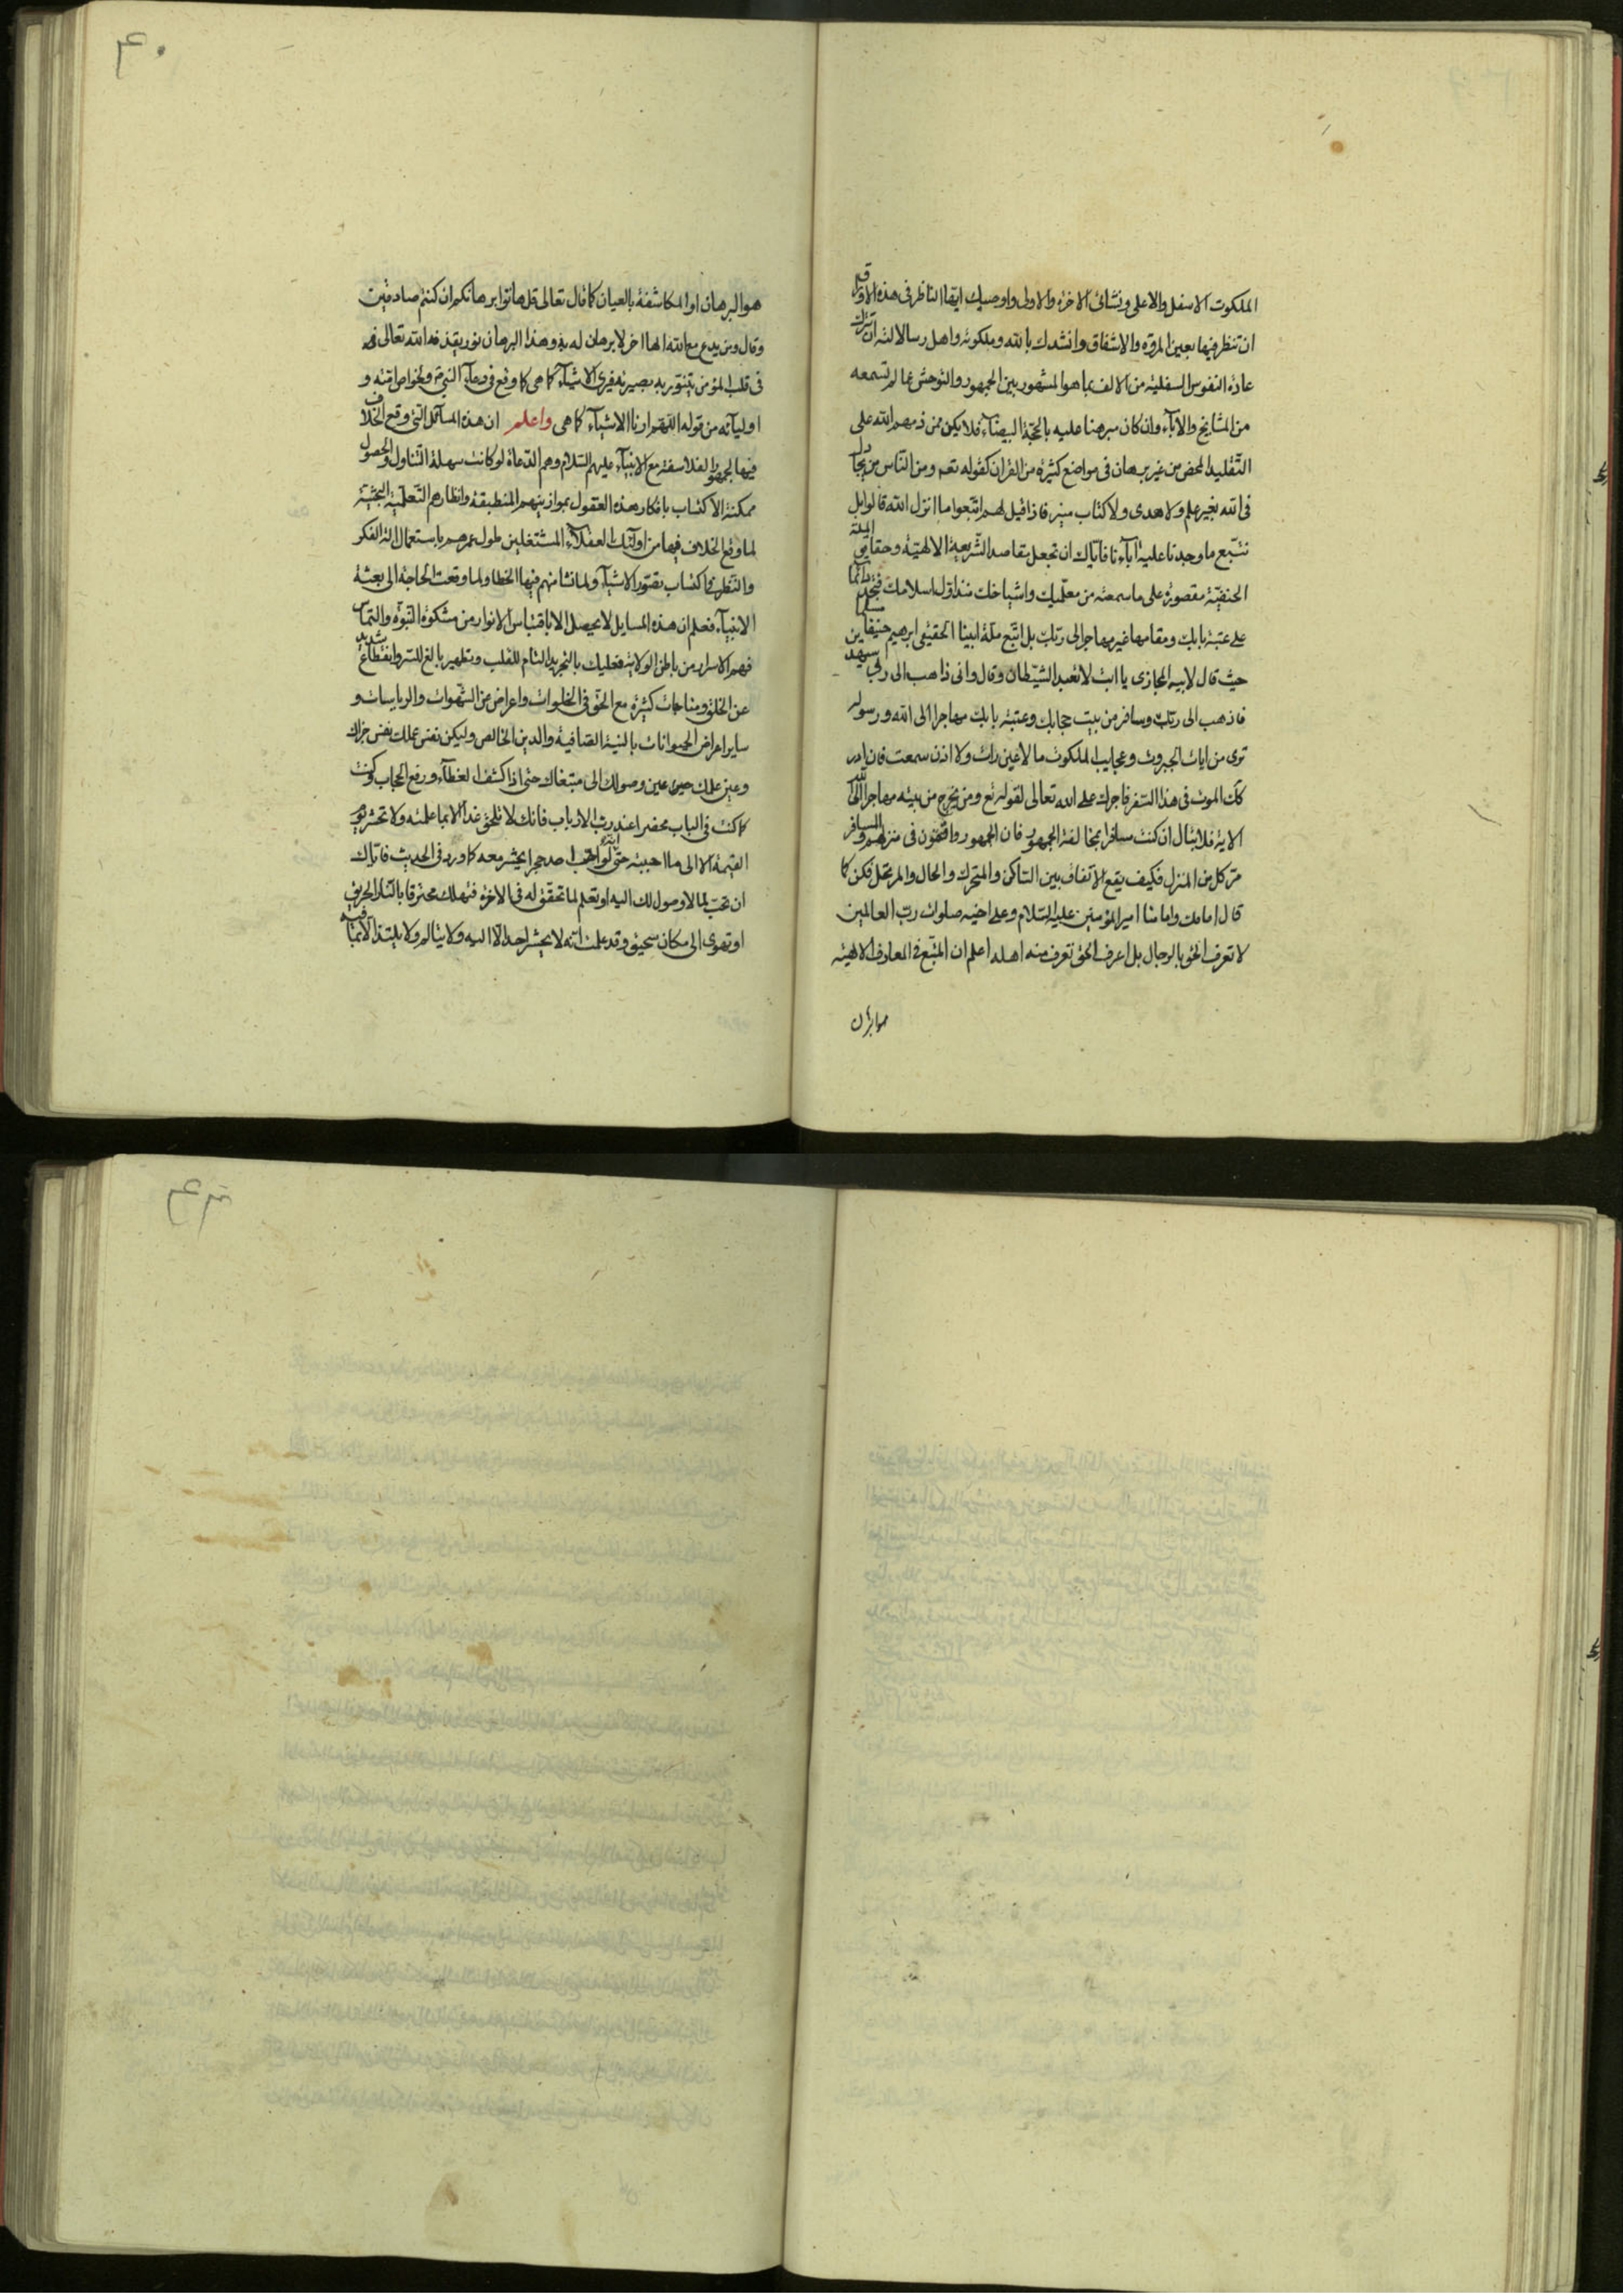 الملكوت الاسفل والاعلى ونشائى الاخرة والاولى واوصيك ايها الناظر فى هذه الاوراق
ان تنظر فيها بعين المروّة والاشفاق وانشدك بالله وملكوته واهل رسالاته ان تترك
عادة النفوس السفلية من الالف بما هو المشهور بين الجمهور والتوحش عما لم تسمعه
من المشايخ والاباء وان كان مبرهنا عليه بالحجّة البيضاء فلا يكن ممن ذمهم الله على
التقليد المحض من غير برهان فى مواضع كثيرة من القران كقوله تعم ومن الناس من يجادل
فى الله بغير علم ولا هدى ولا كتاب منير فاذا قيل لهم اتبعوا ما انزل الله قالوا بل
نتبع ما وجدنا عليه آباءنا فاياك ان تجعل مقاصد الشريعة الالهيّة وحقايق الملة
الحنفيّة مقصورة على ما سمعته من معلّميك واشياخك منذ اول اسلامك فتجمد دائما
على عتبة بابك ومقامها غير مهاجر الى ربّك بل اتبع ملّة ابينا الحقيقى ابرهيم حنيفا مسلما
حيث قال لابيه المجازى يا ابت لا تعبد الشيطان وقال وانى ذاهب الى ربى سيهدين
فاذهب الى ربّك وسافر من بيت حجابك وعتبة بابك مهاجرا الى الله ورسوله
ترى من ايات الجبروت وعجايب الملكوت ما لا عين رات ولا اذن سمعت فان ادر
كك الموت فى هذا السفر فاجرك على الله تعالى لقوله تع ومن يخرج من بيته مهاجرا الى الله
الاية فلا تبال ان كنت مسافرا بمخالفة الجمهور فان الجمهور واقفون فى منزلهم والمسافر
متر كل من المنزل فكيف يقع الاتفاق بين الساكن والمتحرك والحال والمرتحل فكن كما
قال امامك وامامنا امير المؤمنين عليه السلام وعلى اخيه صلوات ربّ العالمين
لا تعرف الحق بالرجال بل اعرف الحق تعرف منه اهله اعلم ان المتبع فى المعارف الالهيّة
هو البرهان
٤٠
هو البرهان او المكاشفة بالعيان كما قال تعالى قل هاتوا برهانكم ان كنتم صادقين
وقال ومن يدع مع الله الها اخر لا برهان له به وهذا البرهان نور يقذفه الله تعالى
فى قلب المؤمن يتنور به بصيرته فيرى الاشياء كما هى كما وقع فى دعاء النبى ص ولخواص امّته و
اوليائه من قوله اللّهم ارنا الاشياء كما هى واعلم ان هذه المسائل التى وقع الخلاف
فيها لجمهور الفلاسفة مع الانبياء عليهم السلام وهم الدّعاة لو كانت سهلة التناول والحصول
ممكنة الاكتساب بافكار هذه العقول بموازينهم المنطبقة وانظارهم التعلّمية البحثية
لما وقع الخلاف فيها من اولئك العقلاء المشتغلين طول عمرهم باستعمال الة الفكر
والنظر فى اكتساب تصوّر الاشياء ولما نشا منهم فيها الخطا ولما وقعت الحاجة الى بعثة
الانبياء فعلم ان هذه المسايل لا يحصل الا باقتباس الانوار من مشكوة النبوّة والتماس
فهم الاسرار من باطن الولاية فعليك بالتجريد التام للقلب وتطهير بالغ للسر وانقطاع شديد
عن الخلق ومناجات كثيرة مع الحق فى الخلوات واعراض عن الشهوات والرياسات و
ساير اعراض الحيوانات بالنية الصافية والدين الخالص وليكن نفس عملك نفس جزائك
وعين علمك عين وصولك الى مبتغاك حتى اذا كشف الغطاء ورفع الحجاب وكنت
كما كنت فى الباب محضرا عند ربّ الارباب فانك لا تلحق غدا الا بما علمته ولا تحشر يوم
القيمة الا الى ما احببته حتى انه لو احب احدحجرا يحشر معه كما ورد فى الحديث فاياك
ان تحبّ لما لا وصول لك اليه او تعلم لما تحقق له فى الاخرة فتهلك محترقا بالنار الحريق
او تهوى الى مكان سحيق وقد علمت انه لا يحشر احد الا اليه ولا يتالم ولا يلتذ الا بما فيه